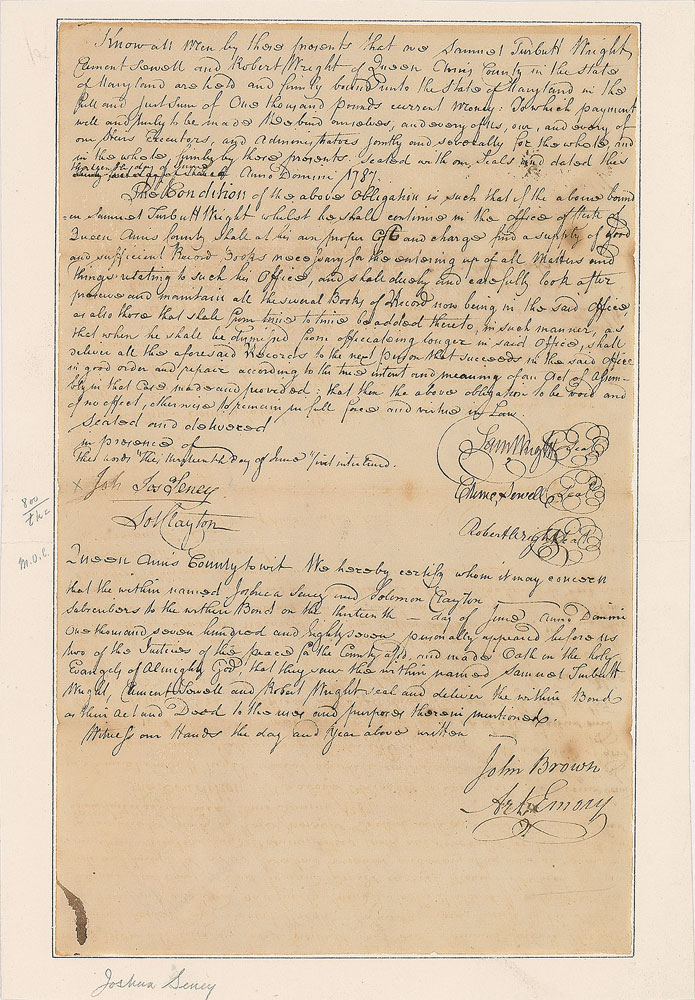 Know all Men by these presents that we Samuel Turbutt Wright
Clement Sewell and Robert Wright of Queen Anns County in the State
of Maryland are held and firmly bound unto the State of Maryland in the
full and Just Sum of One thousand pounds current Money: To which payment
well and truly to be made We bind ourselves, and every of us, our, and every of
our Heirs Executors, and Administrators Jointly and severally for the whole, and
in the whole, firmly by these presents. sealed with our Seals and dated this
thirteenth day of June
Anno Domini 1787.
The Condition of the above Obligation is such that if the above bound
en Samuel Turbutt Wright whilst he shall continue in the office of Clerk of
Queen Anns County shall at his own proper Cost and charge find a supply of good
and sufficient Record Books necessary for the entering up of all Matters and
things relating to such his Office, and shall duely and carefully look after
preserve and maintain all the several Books of Record now being in the said Office,
as also those that shall from time to time be added thereto, in such manner, as
that when he shall be dismissed from officiating longer in said Office, shall
deliver all the aforesaid Records to the next person that succeeds in the said Office
in good order and repair according to the true intent and meaning of an Act of Assem-
bly in that Case made and provided: that then the above obligation to be void and
of no effect, otherwise to remain in full force and virtue in Law.
Sealed and delivered
in presence of
the words "this thirteenth day of June" first interlined.
Sam Wright Seal
× Joh Jos Seney
Clemt. Sewell Seal
Sol Clayton
Robert Wright Seal
800
M.O.C.
Queen Anns County to wit We hereby certify whom it may concern
that the within named Joshua Seney and Solomon Clayton
subscribers to the within Bond on the thirteenth — day of June anno Domini
One thousand seven hundred and Eighty seven personally appeared before us
two of the Justices of the peace for the County afsd. and made Oath on the holy
Evangels of Almighty God that they saw the within named Samuel Turbutt
Wright, Clement Sewell and Robert Wright seal and deliver the within Bond
as their Act and Deed to the uses and purposes therein mentioned.
Witness our Hands the day and Year above written
John Brown
Art. Emory
Joshua Seney